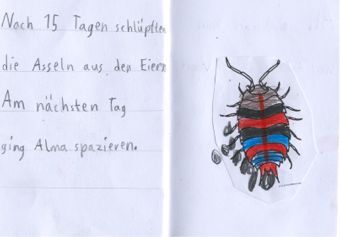 Nach 15 Tagen schlüpften
die Asseln aus den Eiern.
Am nächsten Tag
ging Alma spazieren.